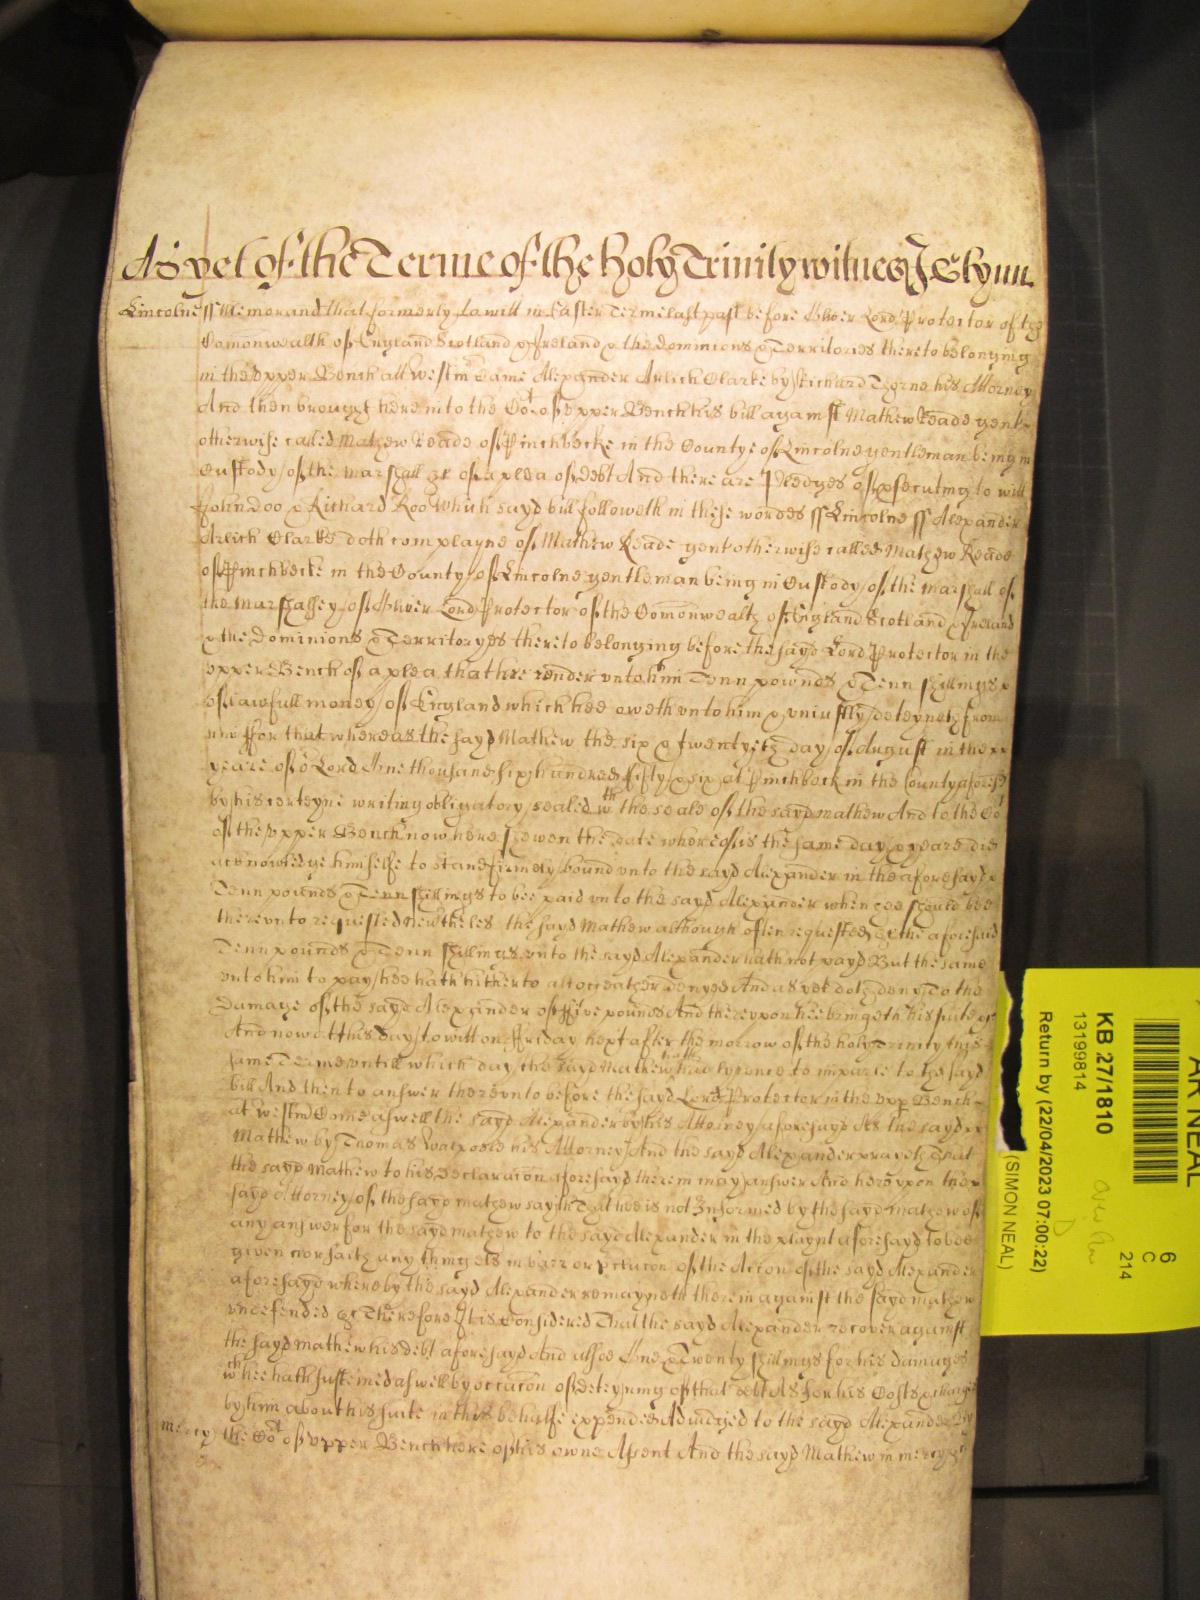 As yet of the Terme of the holy Trinity witnes J Glynn
Lincolne ss Memorand that formerly to witt in Easter Terme last past before Oliver Lord Protector of the
Comonwealth of England Scotland & Ireland & the Dominions & Territories thereto belonging
in the upper Bench att Westm Came Alexander Arlich Clarke by Richard Thorne his Attorney
And then brought here into the Cot of upper Bench his bill against Mathew Reade gent
otherwise called Mathew Reade of Pinchbecke in the County of Lincolne gentleman being in
Custody of the Marshall &c of a plea of debt And there are Pledges of psecuting to witt
John Doo & Richard Roo Which sayd bill followeth in these wordes ss Lincolne ss Alexander
Arlich Clarke doth complayne of Mathew Reade gent otherwise called Mathew Reade
of Pinchbecke in the County of Lincolne gentleman being in Custody of the Marshall of
the Marshalsey of Oliver Lord Protector of the Comonwealth of England Scotland & Ireland
& the Dominions & Territoryes thereto belonging before the sayd Lord Protector in the
upper Bench of a plea that hee render unto him Tenn pownds & Tenn shillings
of lawfull money of England which hee oweth unto him & uniustly deteyneth from
him ffor that whereas the sayd Mathew the six & twentyeth day of August in the
yeare of or Lord One thousand six hundred fifty & six at Pinchbeck in the County aforesd
by his certeyne writing obligatory sealed wth the seale of the sayd Mathew And to the Cot
of the upper Bench now here shewen the date whereof is the same day & yeare did
acknowledge himselfe to stand firmely bound unto the sayd Alexander in the aforesayd
Tenn pounds & Tenn shillings to bee paid unto the sayd Alexander when hee should bee
thereunto requested nevtheles the sayd Mathew although often requested &c the aforesaid
Tenn pounds & Tenn shillings unto the sayd Alexander hath not payd But the same
unto him to pay hee hath hitherto altogeather denyed And as yet doth deny To the
Damage of the sayd Alexander of ffive pounds And thereupon hee bringeth his suite &c
And now att this day to witt on ffriday next after the morrow of the holy Trinity this
same Terme untill which day the sayd Mathew hath lycence to imparle to the sayd
bill And then to answer thereunto before the sayd Lord Protector in the upp Bench
at Westm Come aswell the sayd Alexander by his Attorney aforesayd As the sayd
Mathew by Thomas Walpoole his Attorney And the sayd Alexander prayeth That
the sayd Mathew to his Declaracon aforesayd therein may answer And hereupon the
sayd Attorney of the sayd Mathew sayth That hee is not Informed by the sayd Mathew of
any answer for the sayd Mathew to the sayd Alexander in the playnt aforesayd to bee
given nor saith any thing els in barr or pclucon of the Accon of the sayd Alexander
aforesayd whereby the sayd Alexander remayneth therein against the sayd Mathew
undefended &c Therefore It is Considered That the sayd Alexander recover against
the sayd Mathew his debt aforesayd And alsoe One & Twenty shillings for his damages
wch hee hath susteined aswell by occacon of deteyning of that debt As for his Costs & charges
by him about his suite in this behalfe expended Adiudged to the sayd Alexander by
mercy the Cot of upper Bench here of his owne Assent And the sayd Mathew in mercy &c
AR NEAL
6
C
214
KB 27/1810
13199814
Return by (22/04/2023 07:00:22)
(SIMON NEAL)